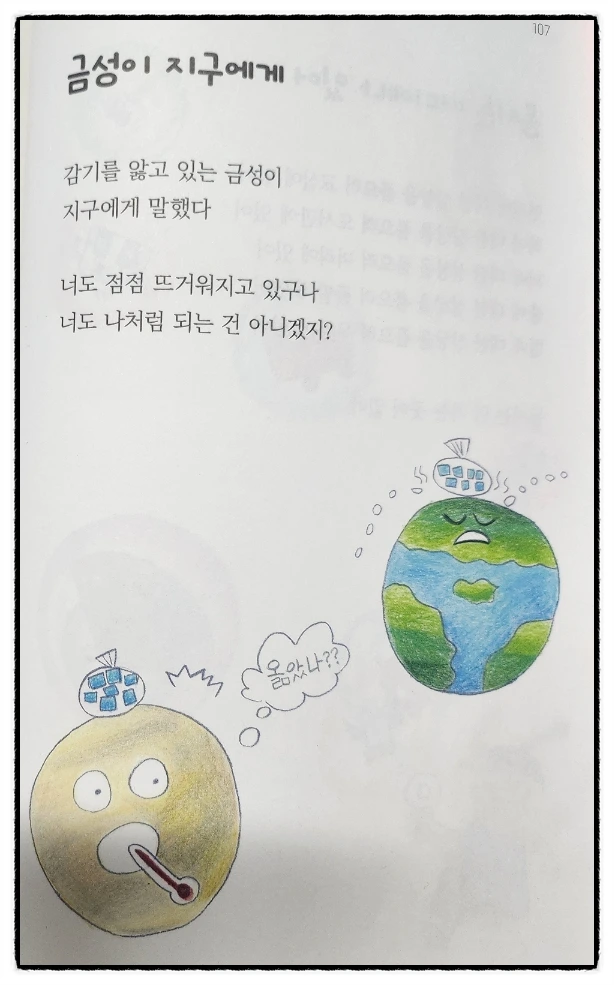 107
금성이 지구에게
감기를 앓고 있는 금성이
지구에게 말했다
너도 점점 뜨거워지고 있구나
너도 나처럼 되는 건 아니겠지?
옮았나??